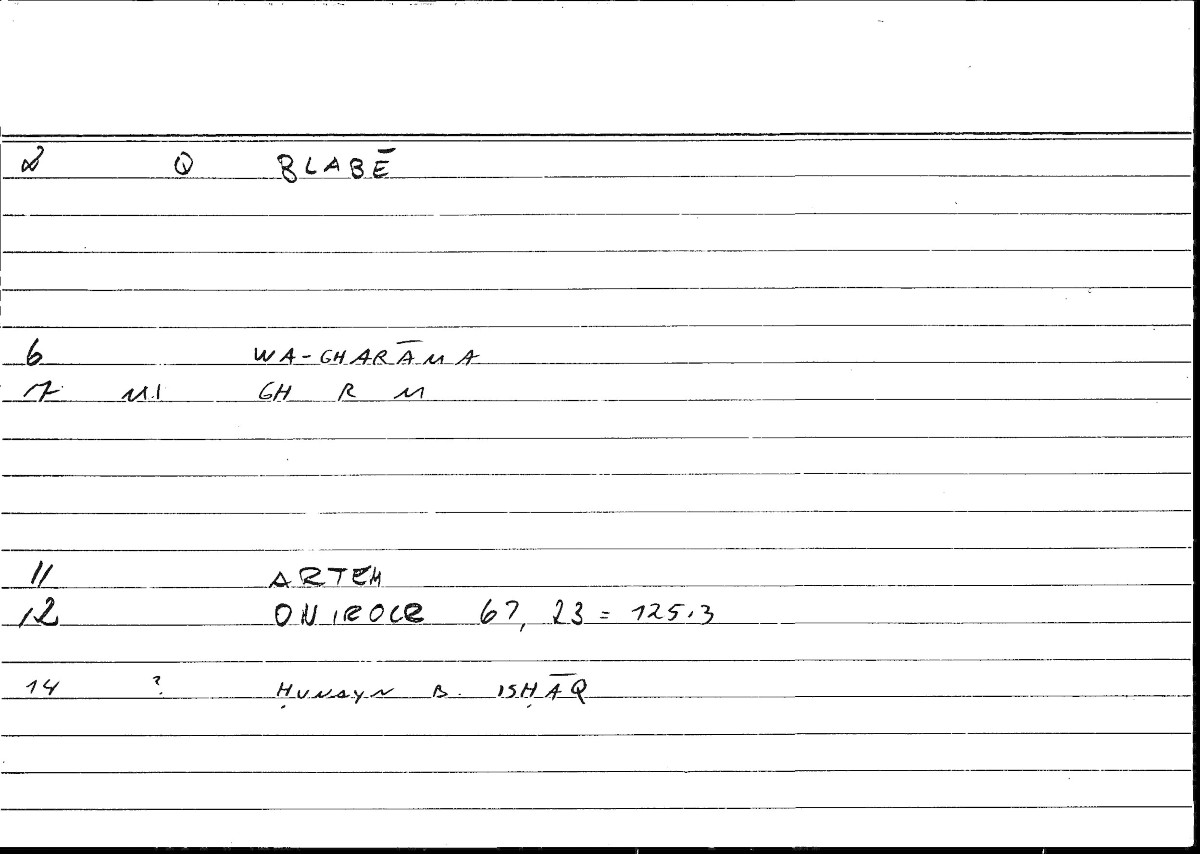 2 Q BLABĒ
6 WA-GHARĀMA
7 M.1 GH R M
11 ARTEM
12 ONIROCR 67, 23 = 125.3
14 ? ḤUNAYN B. ISḤĀQ